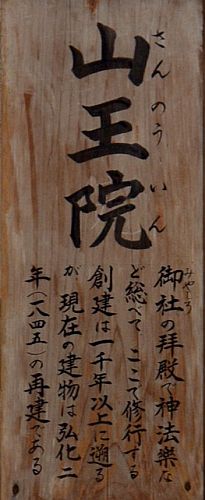 山王院
さんのういん
御社の拝殿で神法楽な
みやしろ
ど総べてここで修行する
創建は一千年以上に遡る
が、現在の建物は弘化二
年(一八四五)の再建である